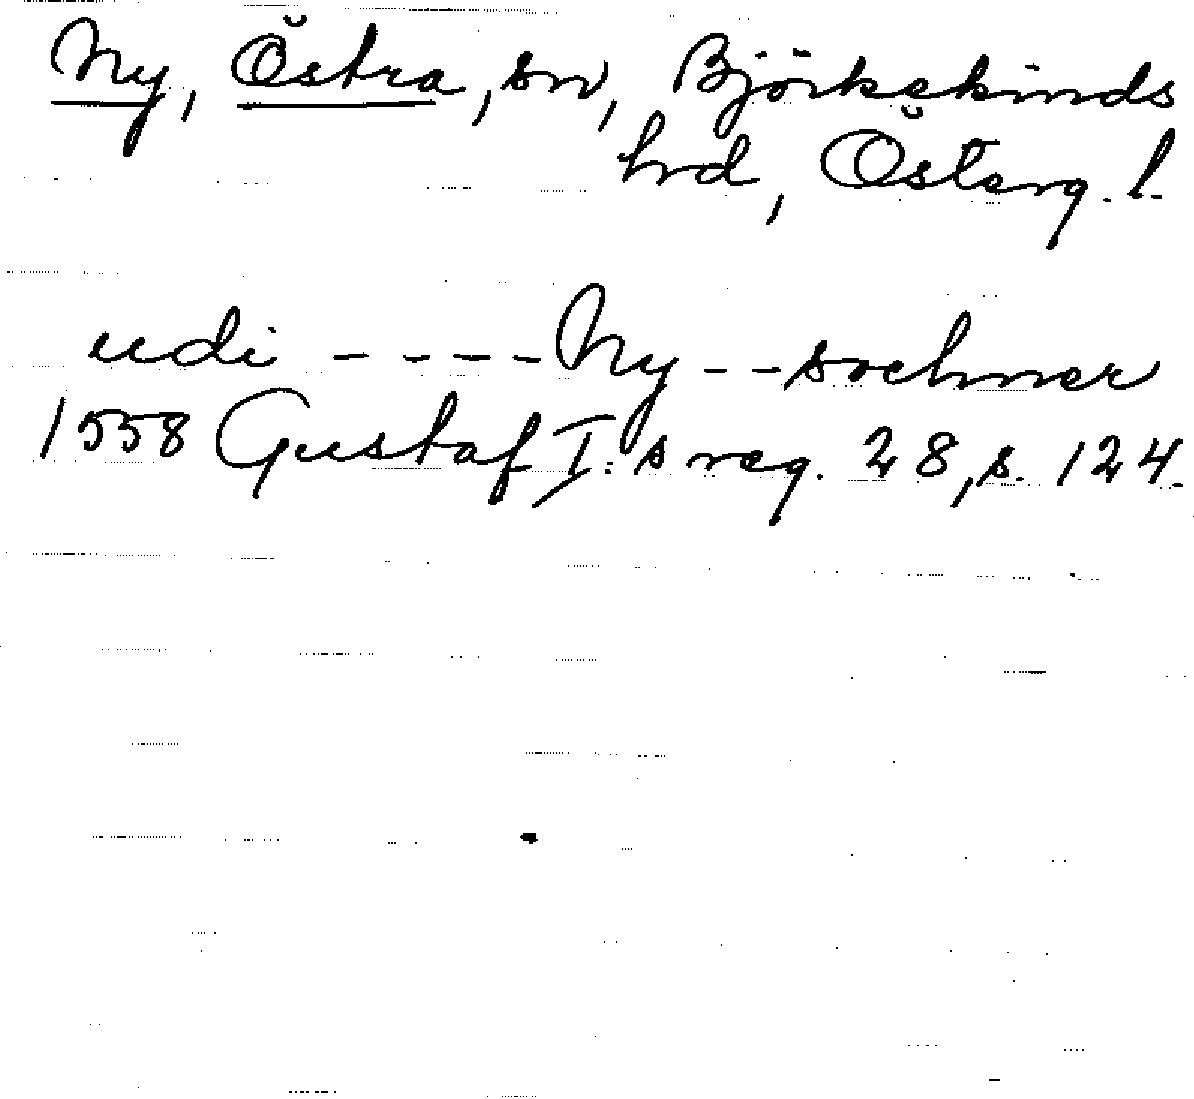 Ny, Östra, sn, Björkekinds
hrd, Österg. l.
udi ---- Ny -- sochner
1558 Gustaf I:s reg. 28, s. 124.